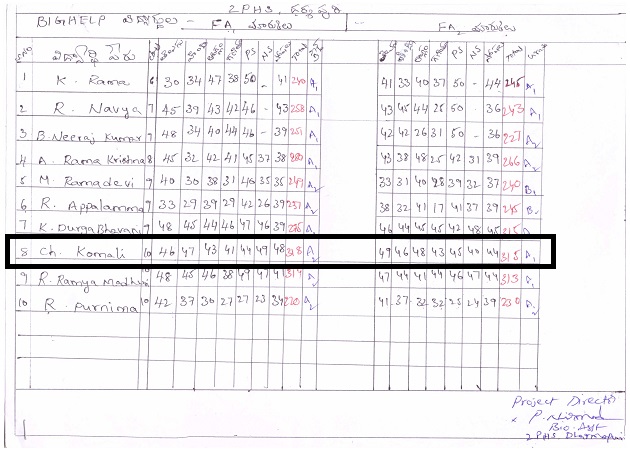 ZPHS, ధర్మపురి
BIGHELP విద్యార్థులు - FA మార్కులు - FA మార్కులు
విద్యార్థి పేరు PS N.S PS N.S
1 K. Rama 6 30 34 47 38 50 - 41 240 A1 41 33 40 37 50 - 44 245 A1
2 R. Navya 7 45 39 43 42 46 - 43 258 A1 43 45 44 25 50 - 36 243 A1
3 B. Neeraj Kumar 7 48 34 40 44 46 - 39 251 A1 42 42 26 31 50 - 36 227 A2
4 A. Rama Krishna 8 45 32 42 41 45 37 38 280 A2 43 38 48 25 42 31 39 266 A2
5 M. Ramadevi 9 40 30 38 31 40 35 35 249 A2 33 31 40 28 39 32 37 240 B1
6 R. Appalamma 9 33 29 39 29 42 26 39 237 A2 38 32 41 17 41 37 39 245
7 K. Durga Bhavani 9 48 45 44 46 47 46 39 A1 46 44 45 45 42 48 45 315 A1
8 Ch. Komali 10 46 47 43 41 44 49 48 318 A1 49 46 48 43 45 40 44 315 A1
9 R. Ramya Madhuri 10 48 45 46 38 49 47 41 314 A1 47 44 41 44 46 47 44 313 A1
10 R. Purnima 10 42 37 30 27 27 23 34 220 41 37 32 32 25 24 39 230
Project Director
P.
Bio. Asst
ZPHS Dharmapuri